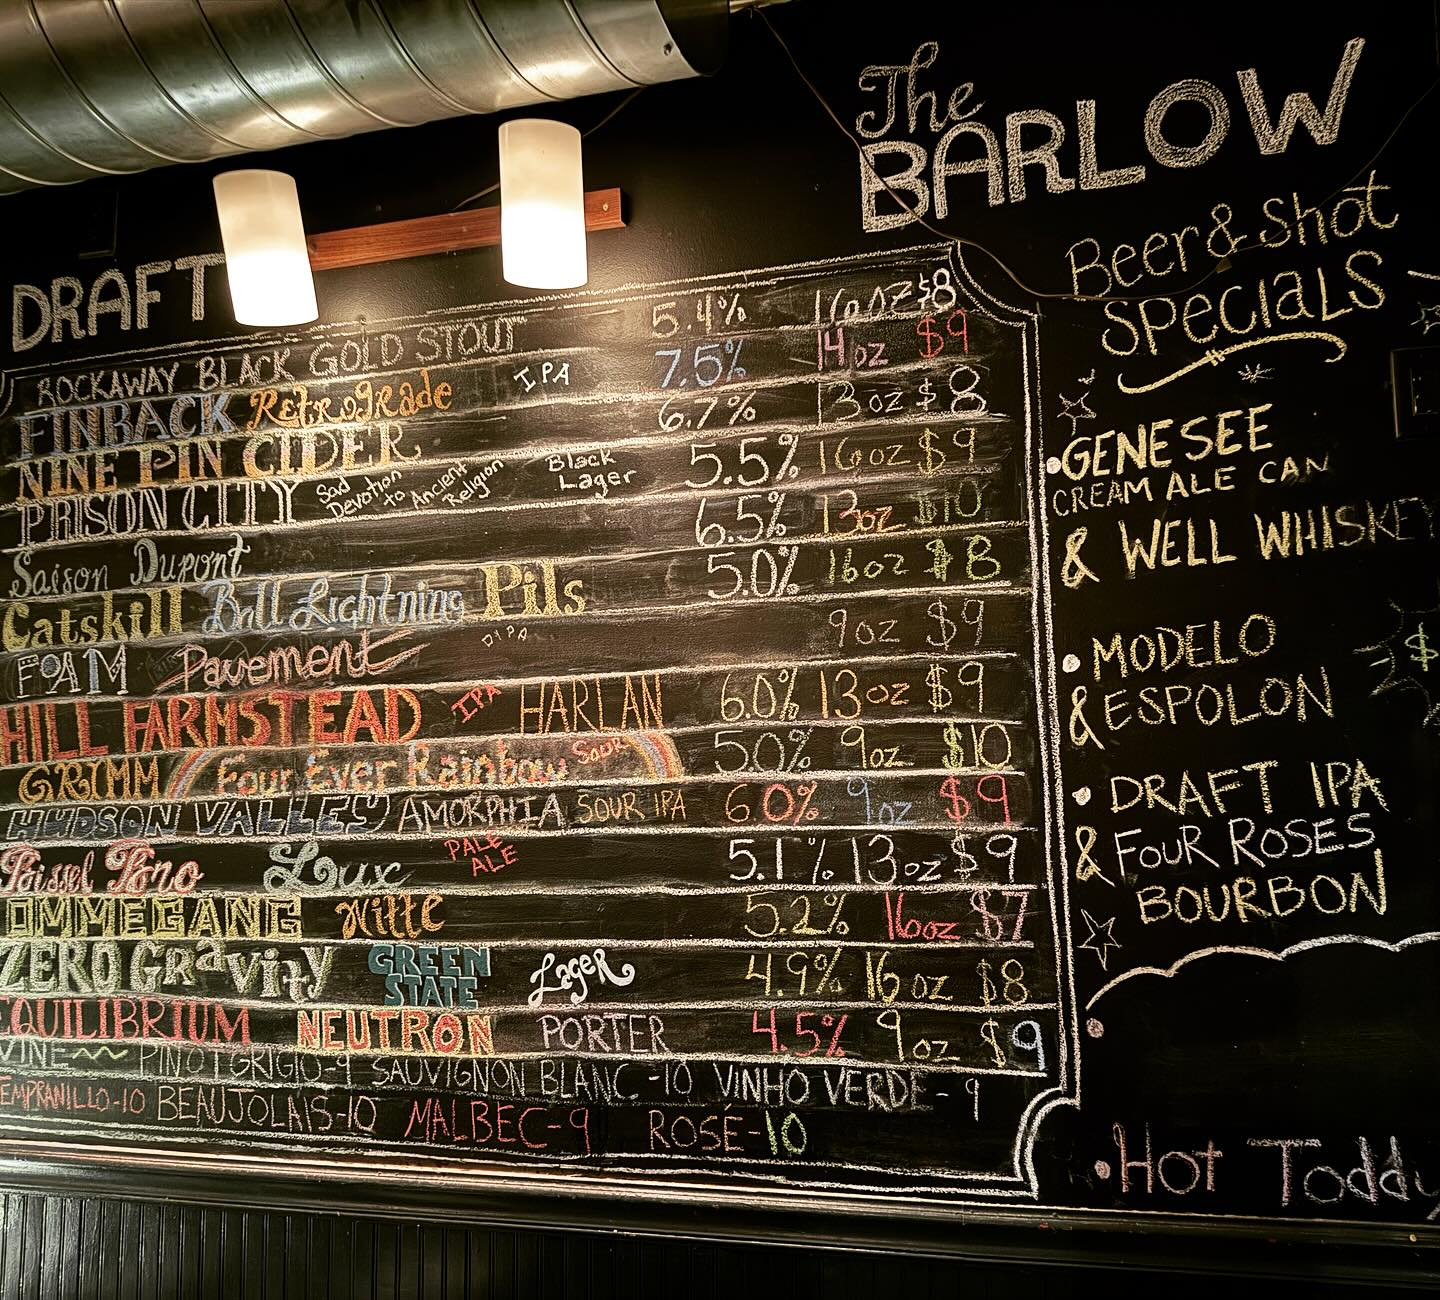 The
BARLOW
DRAFT
ROCKAWAY BLACK GOLD STOUT 5.4% 16oz $8
FINBACK Retrograde IPA 7.5% 14oz $9
NINE PIN CIDER 6.7% 13oz $8
PRISON CITY Sad Devotion to Ancient Religion Black Lager 5.5% 16oz $9
Saison Dupont 6.5% 13oz $10
Catskill Ball Lightning Pils 5.0% 16oz $8
FOAM Pavement DIPA 9oz $9
HILL FARMSTEAD IPA HARLAN 6.0% 13oz $9
GRIMM Four Ever Rainbow SOUR 5.0% 9oz $10
HUDSON VALLEY AMORPHIA SOUR IPA 6.0% 9oz $9
Lux PALE ALE 5.1% 13oz $9
OMMEGANG Witte 5.2% 16oz $7
ZERO GRavity GREEN STATE LageR 4.9% 16oz $8
EQUILIBRIUM NEUTRON PORTER 4.5% 9oz $9
WINE~ PINOT GRIGIO-9 SAUVIGNON BLANC-10 VINHO VERDE-9
TEMPRANILLO-10 BEAUJOLAIS-10 MALBEC-9 ROSÉ-10
Beer & Shot
SPECIALS
• GENESEE
CREAM ALE CAN
& WELL WHISKEY
• MODELO
& ESPOLON
$
• DRAFT IPA
& FOUR ROSES
BOURBON
• HOT Toddy